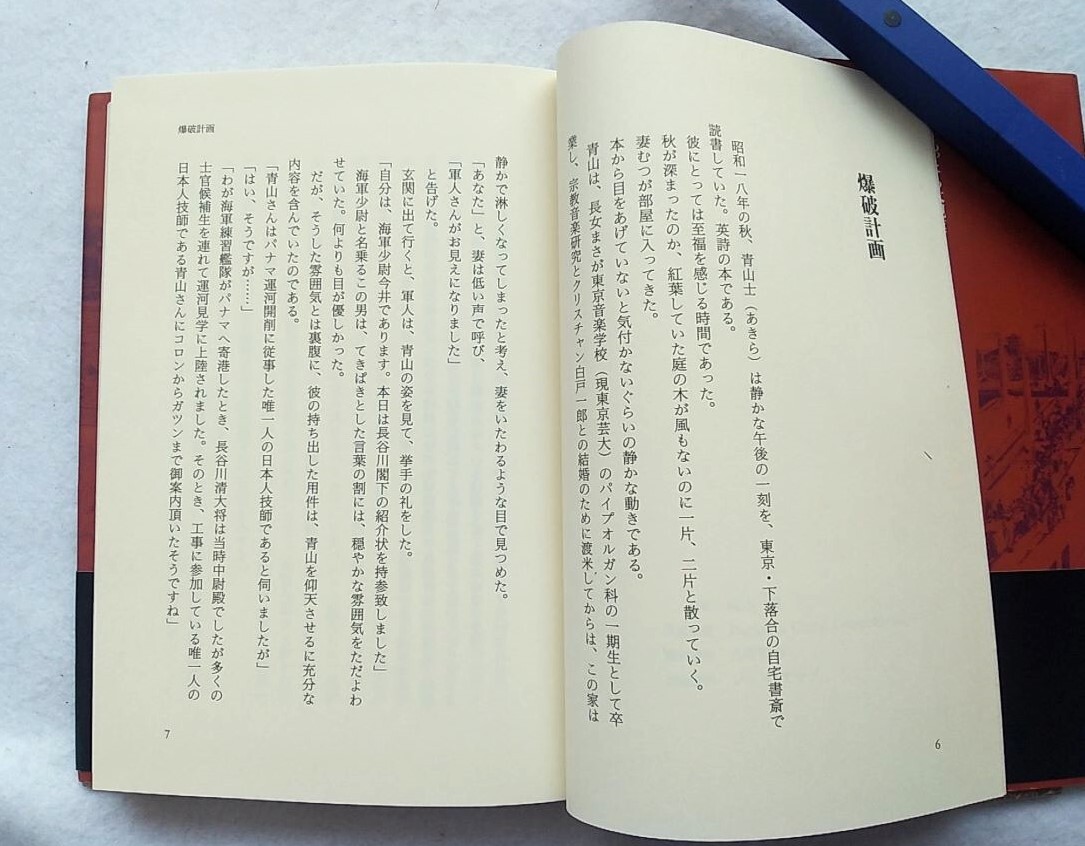 爆破計画
昭和一八年の秋、青山士（あきら）は静かな午後の一刻を、東京・下落合の自宅書斎で
読書していた。英詩の本である。
彼にとっては至福を感じる時間であった。
秋が深まったのか、紅葉していた庭の木が風もないのに一片、二片と散っていく。
妻むつが部屋に入ってきた。
本から目をあげていないと気付かないぐらいの静かな動きである。
青山は、長女まさが東京音楽学校（現東京芸大）のパイプオルガン科の一期生として卒
業し、宗教音楽研究とクリスチャン白戸一郎との結婚のために渡米してからは、この家は
6
爆破計画
静かで淋しくなってしまったと考え、妻をいたわるような目で見つめた。
「あなた」と、妻は低い声で呼び、
「軍人さんがお見えになりました」
と告げた。
玄関に出て行くと、軍人は、青山の姿を見て、挙手の礼をした。
「自分は、海軍少尉今井であります。本日は長谷川閣下の紹介状を持参致しました」
海軍少尉と名乗るこの男は、てきぱきとした言葉の割には、穏やかな雰囲気をただよわ
せていた。何よりも目が優しかった。
だが、そうした雰囲気とは裏腹に、彼の持ち出した用件は、青山を仰天させるに充分な
内容を含んでいたのである。
「青山さんはパナマ運河開削に従事した唯一人の日本人技師であると伺いましたが」
「はい、そうですが……」
「わが海軍練習艦隊がパナマへ寄港したとき、長谷川清大将は当時中尉殿でしたが多くの
士官候補生を連れて運河見学に上陸されました。そのとき、工事に参加している唯一人の
日本人技師である青山さんにコロンからガツンまで御案内頂いたそうですね」
7